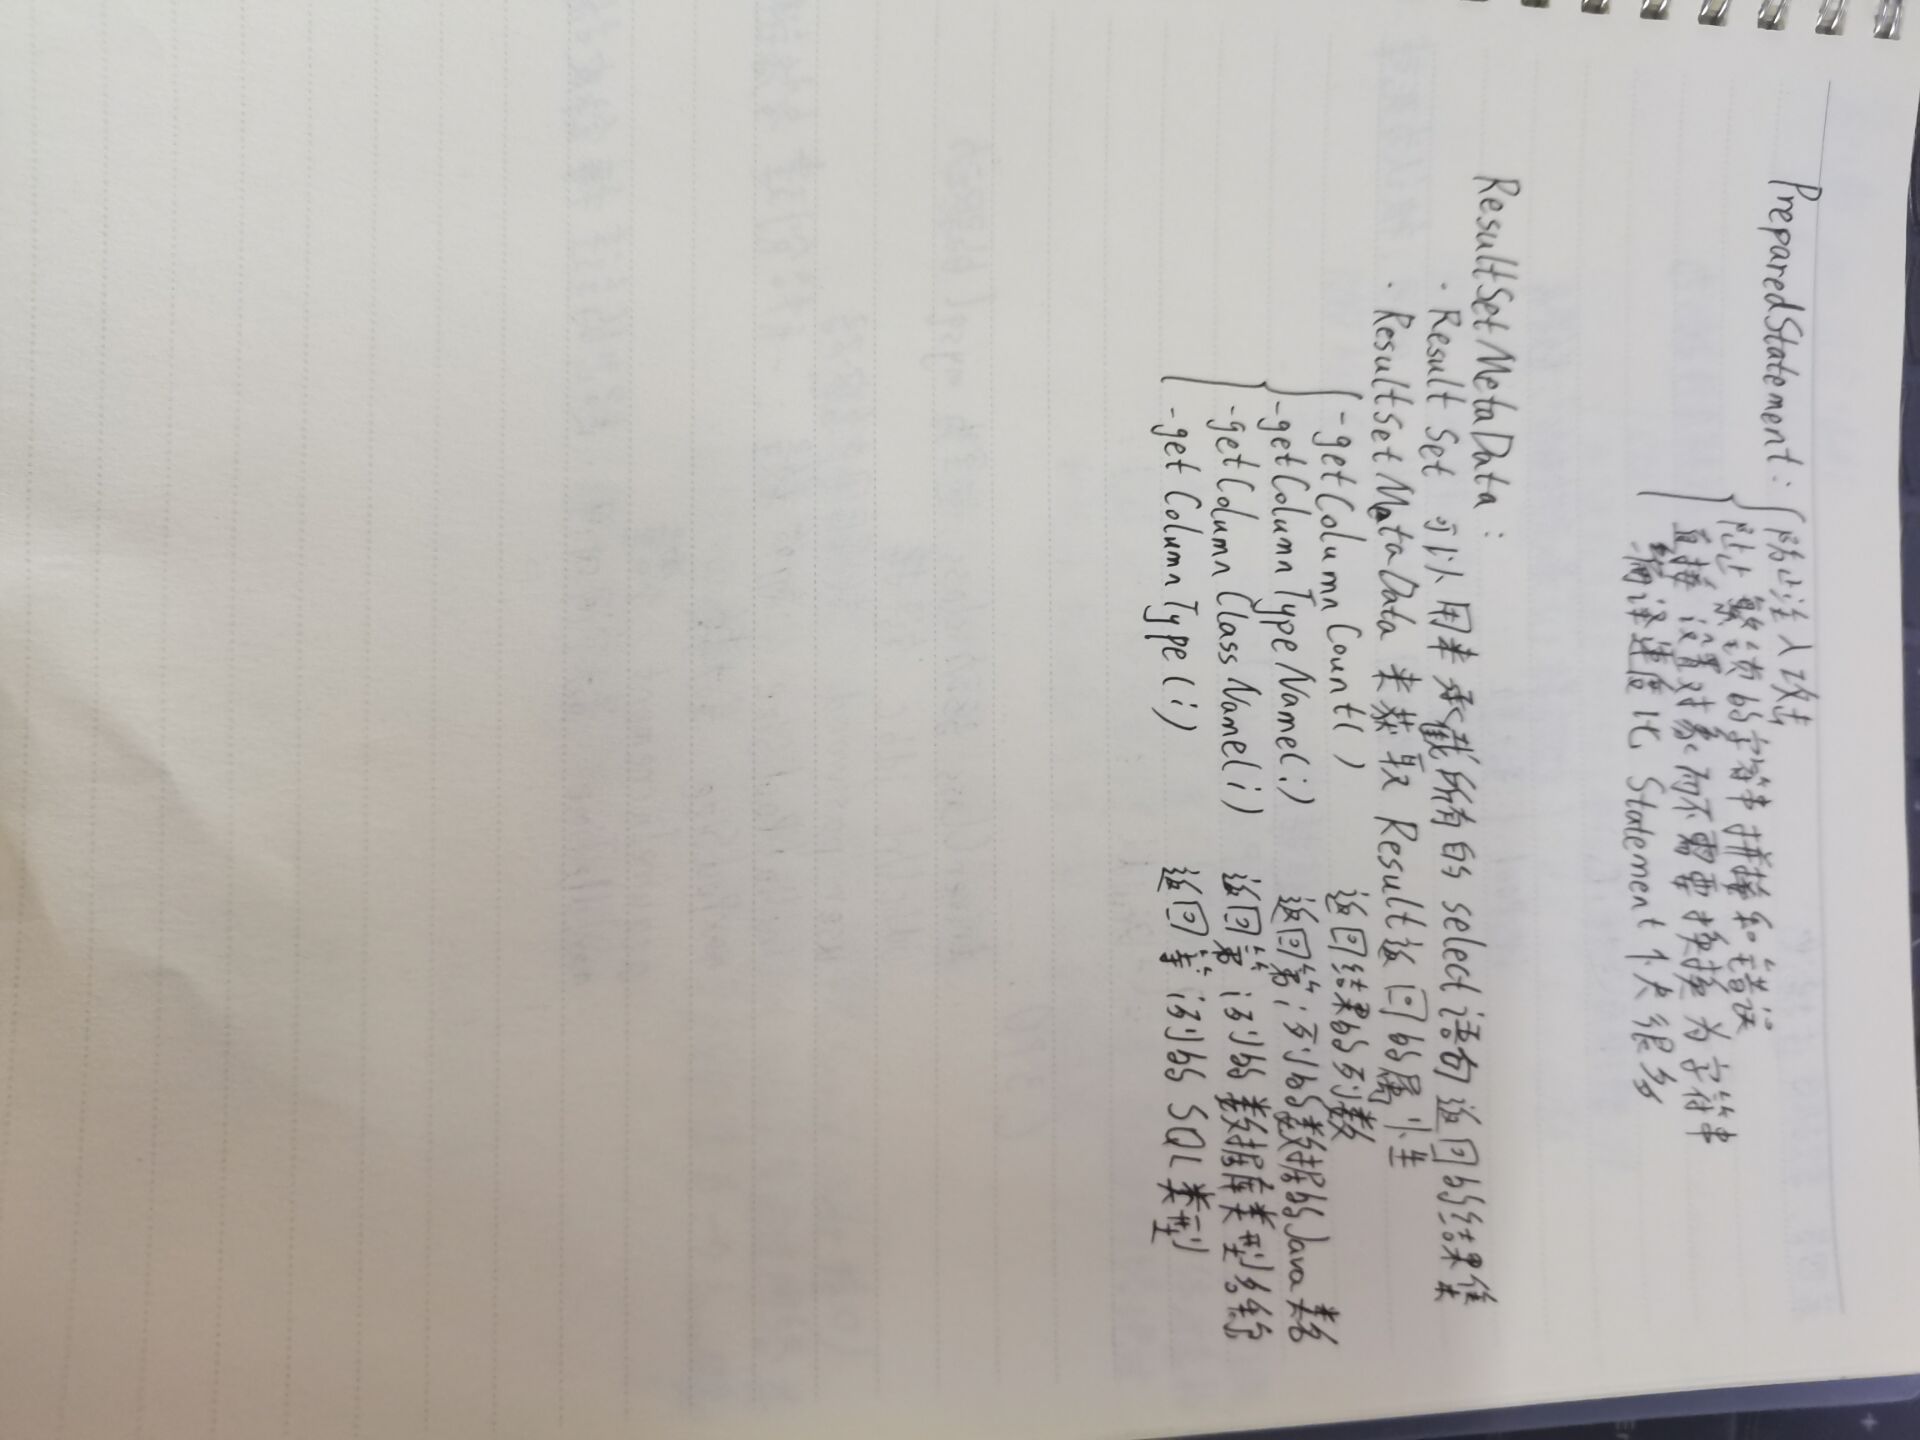 PreparedStatement: 防止注入攻击
防止繁琐的字符串拼接和错误
直接设置对象而不需要转换为字符串
编译速度比 Statement 快很多
ResultSetMetaData:
· Result Set 可以用来承载所有的 select 语句返回的结果集
· ResultSetMetaData 来获取 Result 返回的属性
- getColumnCount() 返回结果的列数
- getColumnTypeName(i) 返回第 i 列的数据的 Java 类名
- getColumnClassName(i) 返回第 i 列的数据库类型名称
- getColumnType(i) 返回第 i 列的 SQL 类型